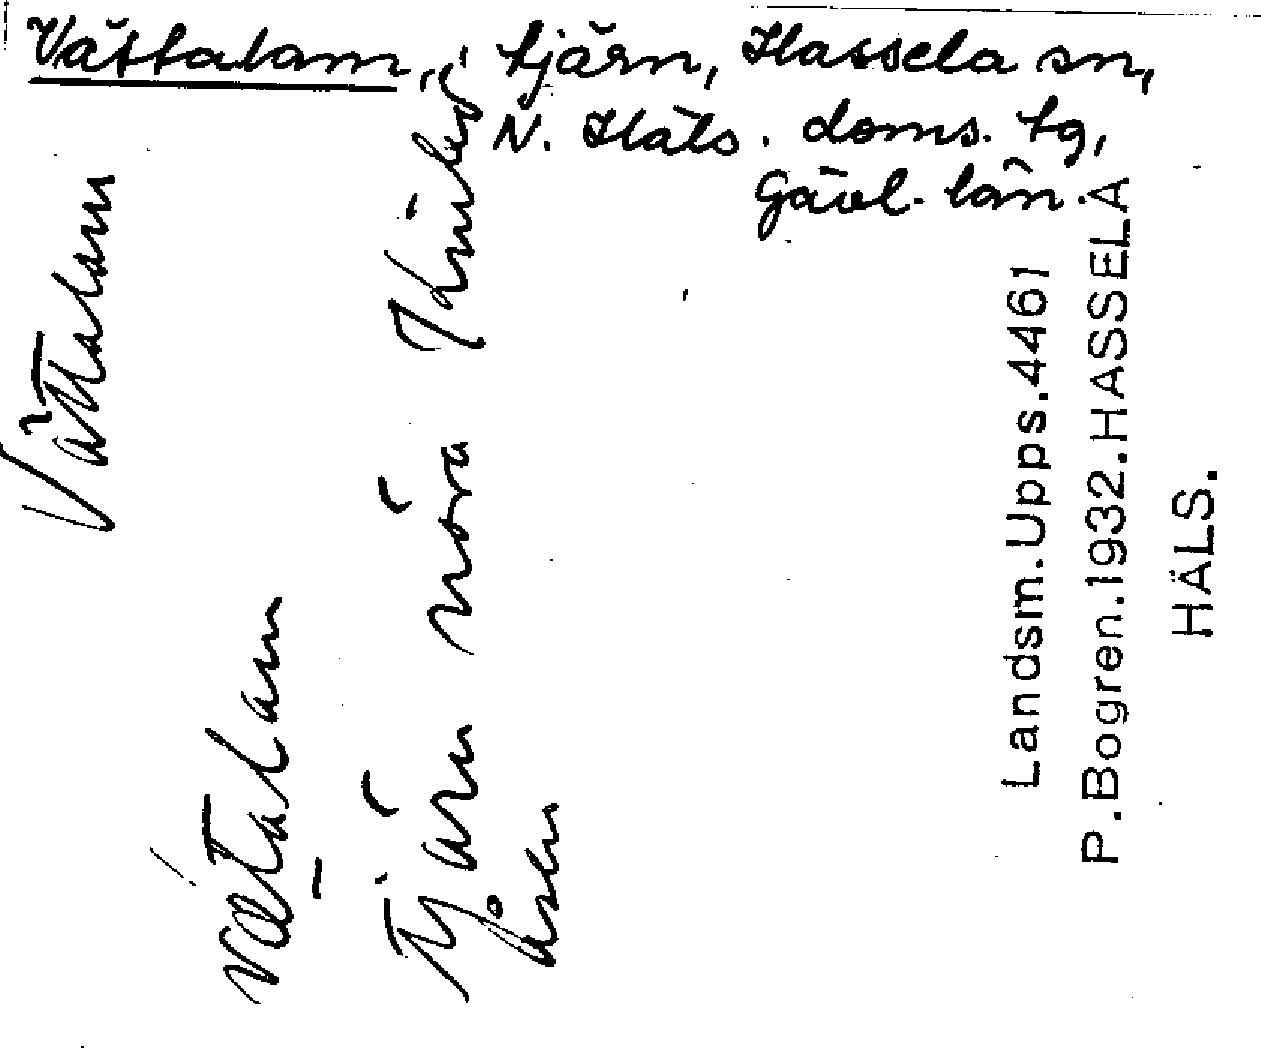 Vättalam, i tjärn, Hassela sn,
N. Häls. doms. tg,
Gävl. län.
Vättalam
vætalam
Tjärn norra
åsen
Landsm. Upps. 4461
P. Bogren. 1932. HASSELA
HÄLS.